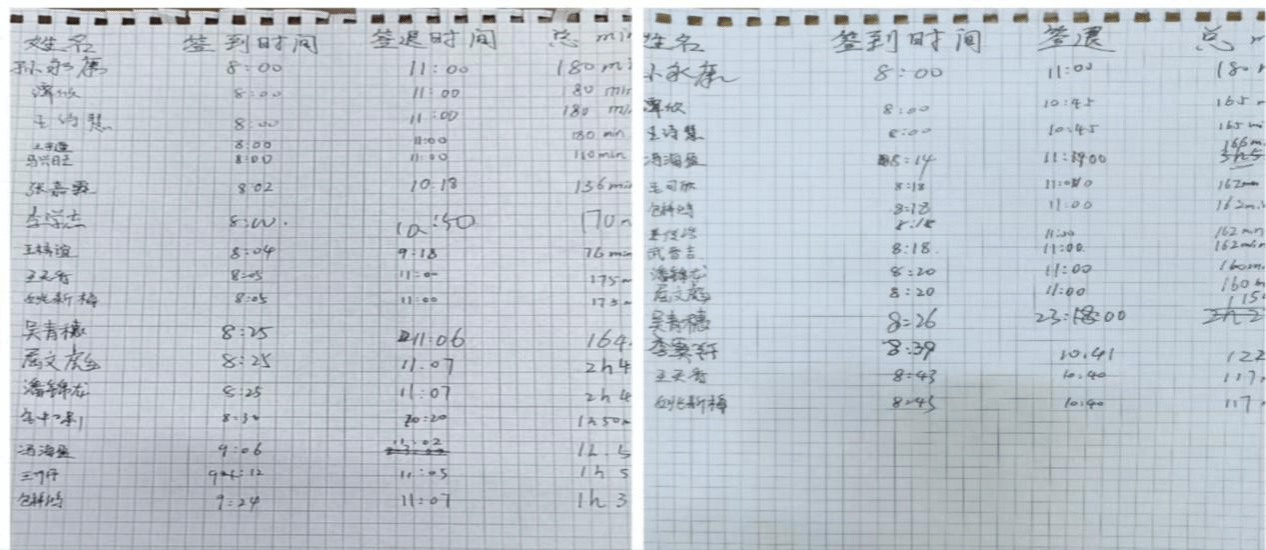 姓名 签到时间 签退时间 总 min
孙永康 8:00 11:00 180 mi
谭欣 8:00 11:00 180 min
王诗慧 8:00 11:00 180 min
8:00 11:00 180 min
8:00 11:00 110min
张嘉霖 8:02 10:18 136 min
李学志 8:00. 10:50 170 m
王梓谊 8:04 9:18 76 min
王天香 8:05 11:00 175
姚新梅 8:05 11:00 175
吴青穗 8:25 11:06 164
屈文彪 8:25 11.07 2h4
潘锦龙 8:25 11:07 2h4
8:30 20:20 1h50m
汤海盈 9:06 11:02 1h.5
9:12 11:05 1h5
包梓鸿 9:24 11:07 1h3
姓名 签到时间 签退 总
孙永康 8:00 11:00 180
谭欣 8:00 10:45 165
王诗慧 8:00 10:45 165 mi
汤海盈 8:14 11:00 166m
8:18 11:00 162min
包梓鸿 8:18 11:00 162mi
8:18 11:00 162 min
武晋吉 8:18. 11:00. 162min
潘锦龙 8:20 11:00 160m
屈文彪 8:20 11:00 160 m
吴青穗 8:26 23:00 115
8:39 10.41 122
王天香 8:43 10.40 117
姚新梅 8:43 10:40 117